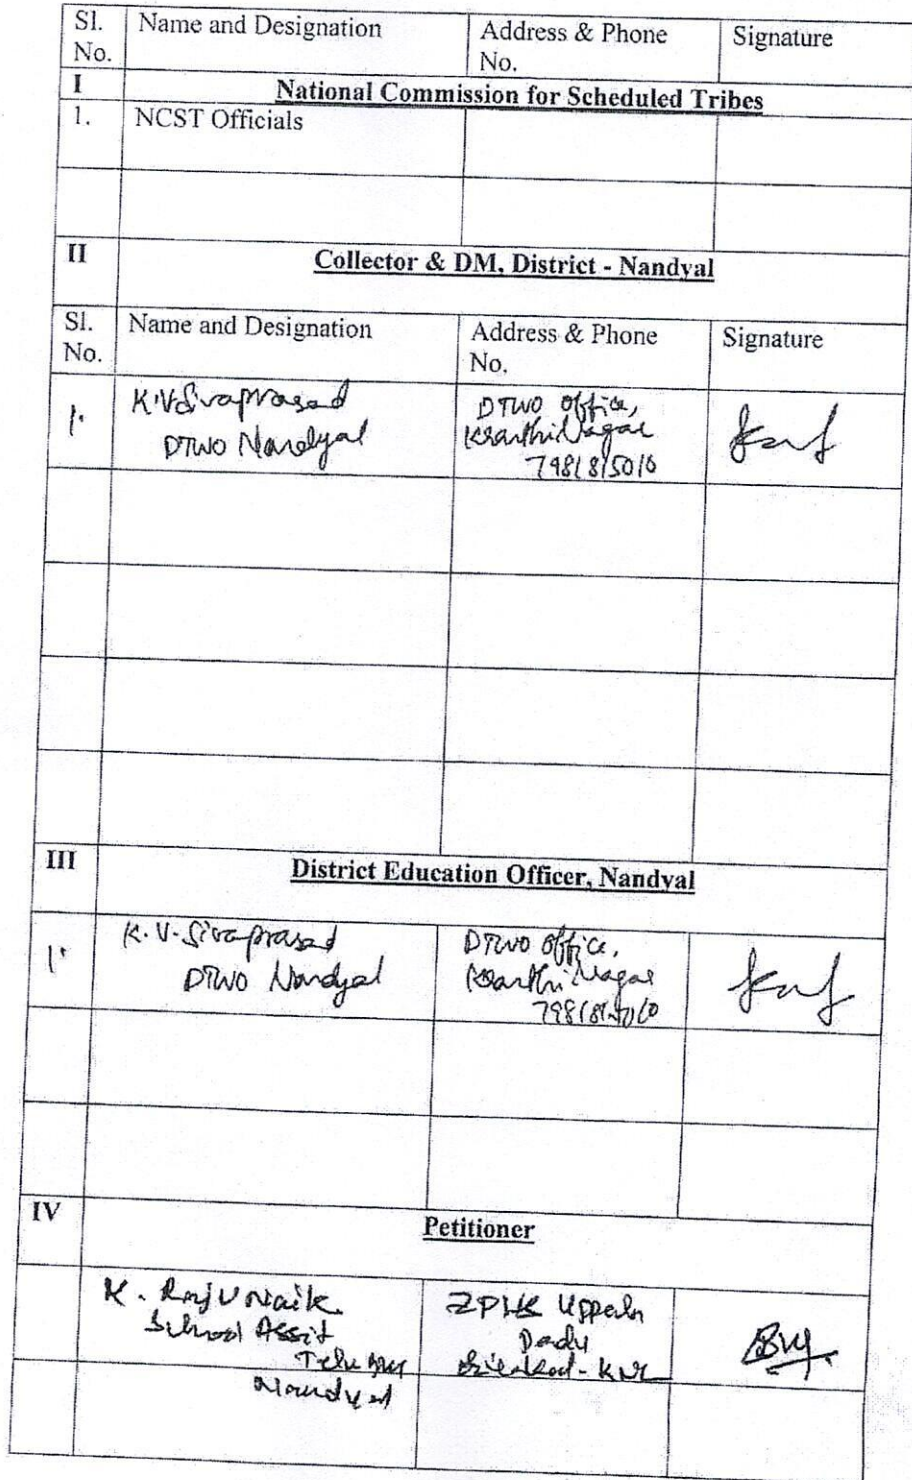 Sl.
No.
Name and Designation
Address & Phone
No.
Signature
I
National Commission for Scheduled Tribes
1.
NCST Officials
II
Collector & DM, District - Nandyal
Sl.
No.
Name and Designation
Address & Phone
No.
Signature
1.
K.V.Sivaprasad
DTWO Nandyal
DTWO Office,
Kranthi Nagar
III
District Education Officer, Nandyal
1.
K.V.Sivaprasad
DTWO Nandyal
DTWO Office,
Kranthi Nagar
IV
Petitioner
K. Raju Naik
School Assit
Telugu
Nandyal
ZPHS Uppala